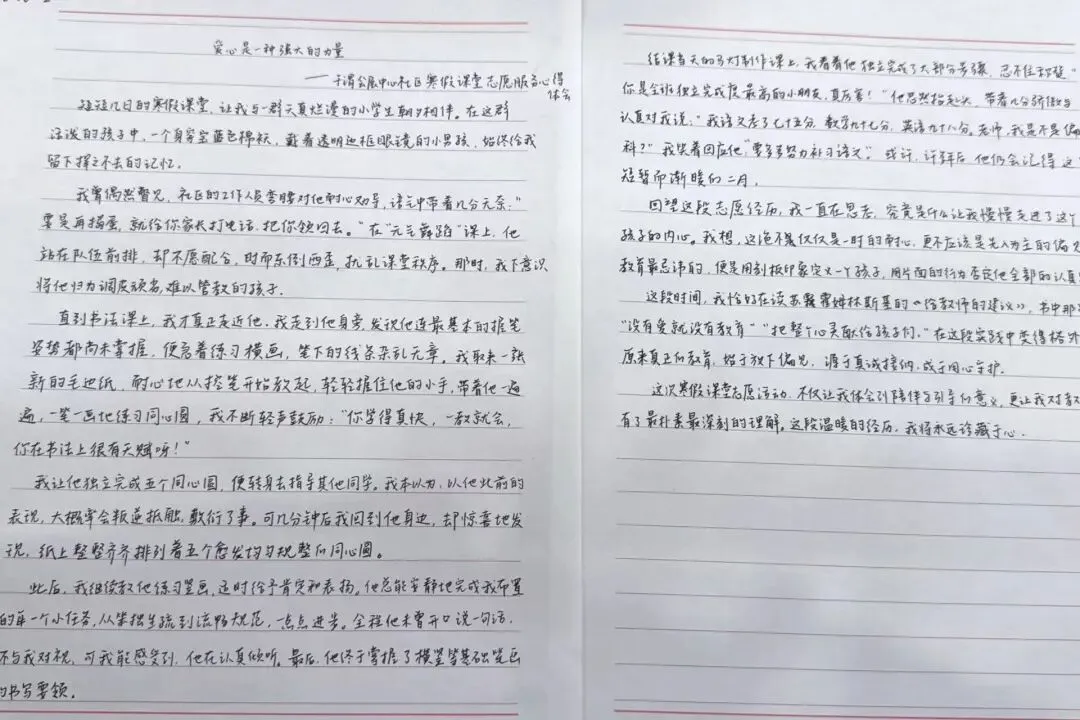 爱心是一种强大的力量
——于渭会展中心社区寒假课堂志愿服务心得
体会
短短几日的寒假课堂，让我与一群天真烂漫的小学生朝夕相伴。在这群
活泼的孩子中，一个身穿宝蓝色棉袄，戴着透明边框眼镜的小男孩，始终给我
留下挥之不去的记忆。
我曾偶然瞥见，社区的工作人员弯腰对他耐心劝导，语气中带着几分无奈："
要是再捣蛋，就给你家长打电话，把你领回去。"在"元气舞蹈"课上，他
站在队伍前排，却不愿配合，时而东倒西歪，扰乱课堂秩序。那时，我下意识
将他归为调皮顽劣，难以管教的孩子。
直到书法课上，我才真正走近他。我走到他身旁，发现他连最基本的握笔
姿势都尚未掌握，便急着练习横画，笔下的线条杂乱无章。我取来一张
新的毛边纸，耐心地从搭笔开始教起，轻轻握住他的小手，带着他一遍
遍，一笔一画地练习同心圆，我不断轻声鼓励："你学得真快，一教就会，
你在书法上很有天赋呀！"
我让他独立完成五个同心圆，便转身去指导其他同学。我本以为，以他此前的
表现，大概率会叛逆抵触，敷衍了事。可几分钟后我回到他身边，却惊喜地发
现，纸上整整齐齐排列着五个愈发均匀规整的同心圆。
此后，我继续教他练习竖画，适时给予肯定和表扬。他总能安静地完成我布置
的每一个小任务，从笨拙生疏到流畅规范，一点点进步。全程他未曾开口说一句话，
不与我对视，可我能感受到，他在认真倾听。最后，他终于掌握了横竖等基础笔画
的书写要领。
结课当天的弓灯制作课上，我看着他独立完成了大部分步骤，忍不住称赞"
你是全班独立完成度最高的小朋友，真厉害！"他忽然抬起头，带着几分骄傲与
认真对我说："我语文考了七十五分，数学九十七分，英语九十八分。老师，我是不是偏
科？"我笑着回应他，"要多多努力补习语文"。或许，许多年后他仍会记得这
短暂而渐暖的二月。
回望这段志愿经历，我一直在思考，究竟是什么让我慢慢走进了这个
孩子的内心。我想，这绝不仅仅是一时的耐心，更不应该是先入为主的偏见
教育最忌讳的，便是用刻板印象定义一个孩子，用片面的行为否定他全部的认真
这段时间，我恰好在读苏霍姆林斯基的《给教师的建议》，书中那
"没有爱就没有教育""把整个心灵献给孩子们。"在这段实践中变得格外
原来真正的教育，始于放下偏见，源于真诚接纳，成于用心守护。
这次寒假课堂志愿活动，不仅让我体会到陪伴与引导的意义，更让我对教
有了最朴素最深刻的理解。这段温暖的经历，我将永远珍藏于心。